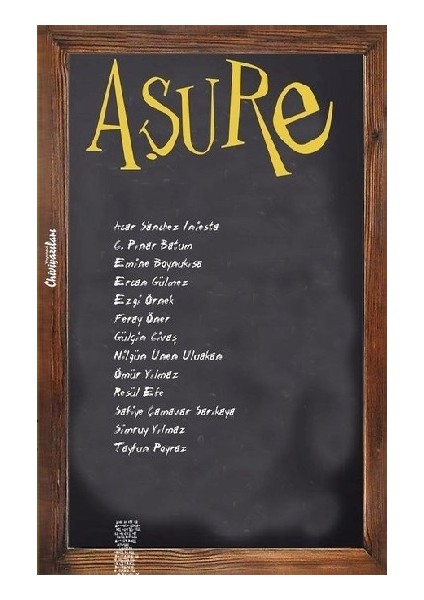 AŞURe
Azar Sanchez Iniesta
G. Pınar Batum
Emine Boynukısa
Ercan Gülmez
Ezgi Örnek
Feray Öner
Gülçin Civaş
Nilgün Unan Uluakan
Ömür Yılmaz
Resül Efe
Safiye Çamavar Sarıkaya
Simruy Yılmaz
Tayfun Poyraz
Chiviyazıları